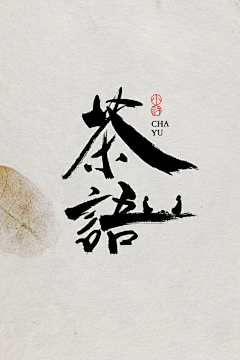 茶
語
CHA
YU